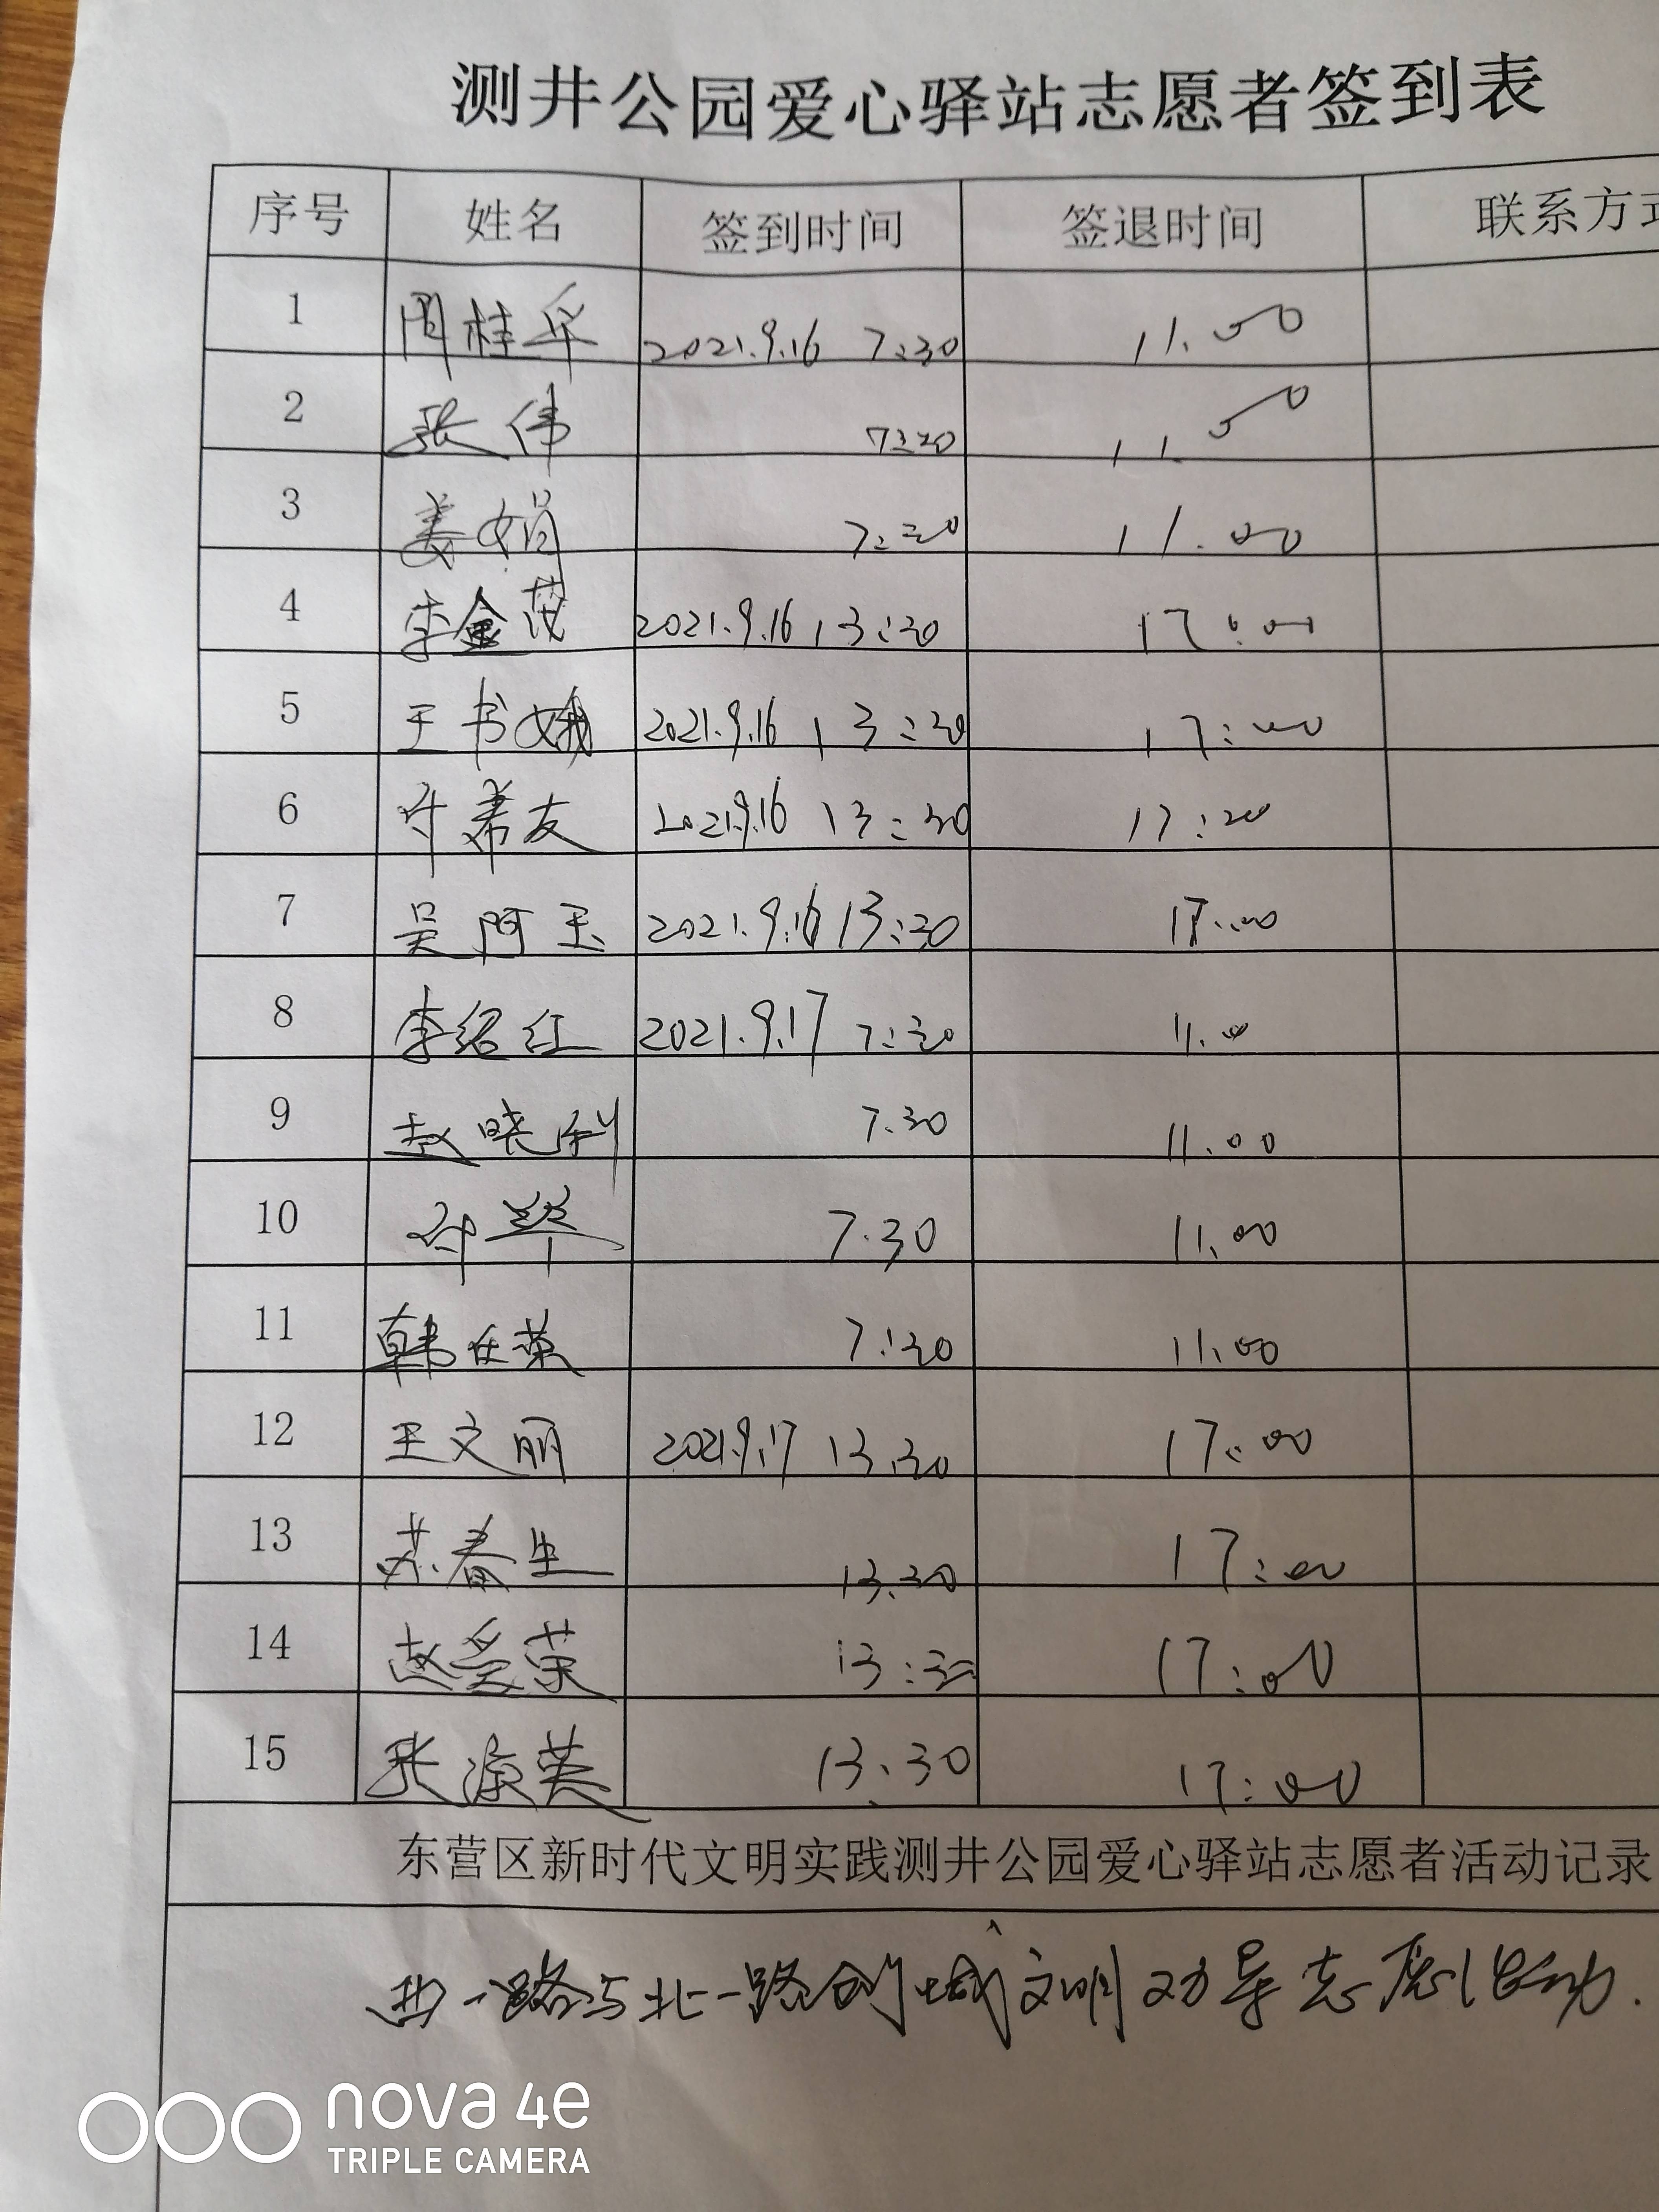 测井公园爱心驿站志愿者签到表
序号 姓名 签到时间 签退时间 联系方式
1 周桂华 2021.9.16 7:30 11.00
2 张伟 7:30 11.00
3 姜娟 7:30 11.00
4 李金茂 2021.9.16 13:30 17:00
5 王书娥 2021.9.16 13:30 17:00
6 友 2021.9.16 13:30 17:20
7 吴阿玉 2021.9.16 13:30 17:00
8 李绍红 2021.9.17 7:30 11.00
9 赵晓利 7.30 11.00
10 7.30 11.00
11 韩在荣 7:30 11.00
12 王文丽 2021.9.17 13.30 17:00
13 苏春生 13.30 17:00
14 赵爱荣 13:30 17:00
15 张英 13.30 17:00
东营区新时代文明实践测井公园爱心驿站志愿者活动记录
西一路与北一路创城文明劝导志愿活动.
nova 4e
TRIPLE CAMERA